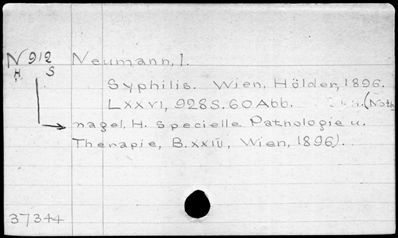 N 912 Neumann, I.
H S
Syphilis. Wien, Hölder, 1896.
LXXVI, 928S. 60 Abb. (Noth-
nagel, H. Specielle Pathologie u.
Therapie, B.XXIII, Wien, 1896).
37344